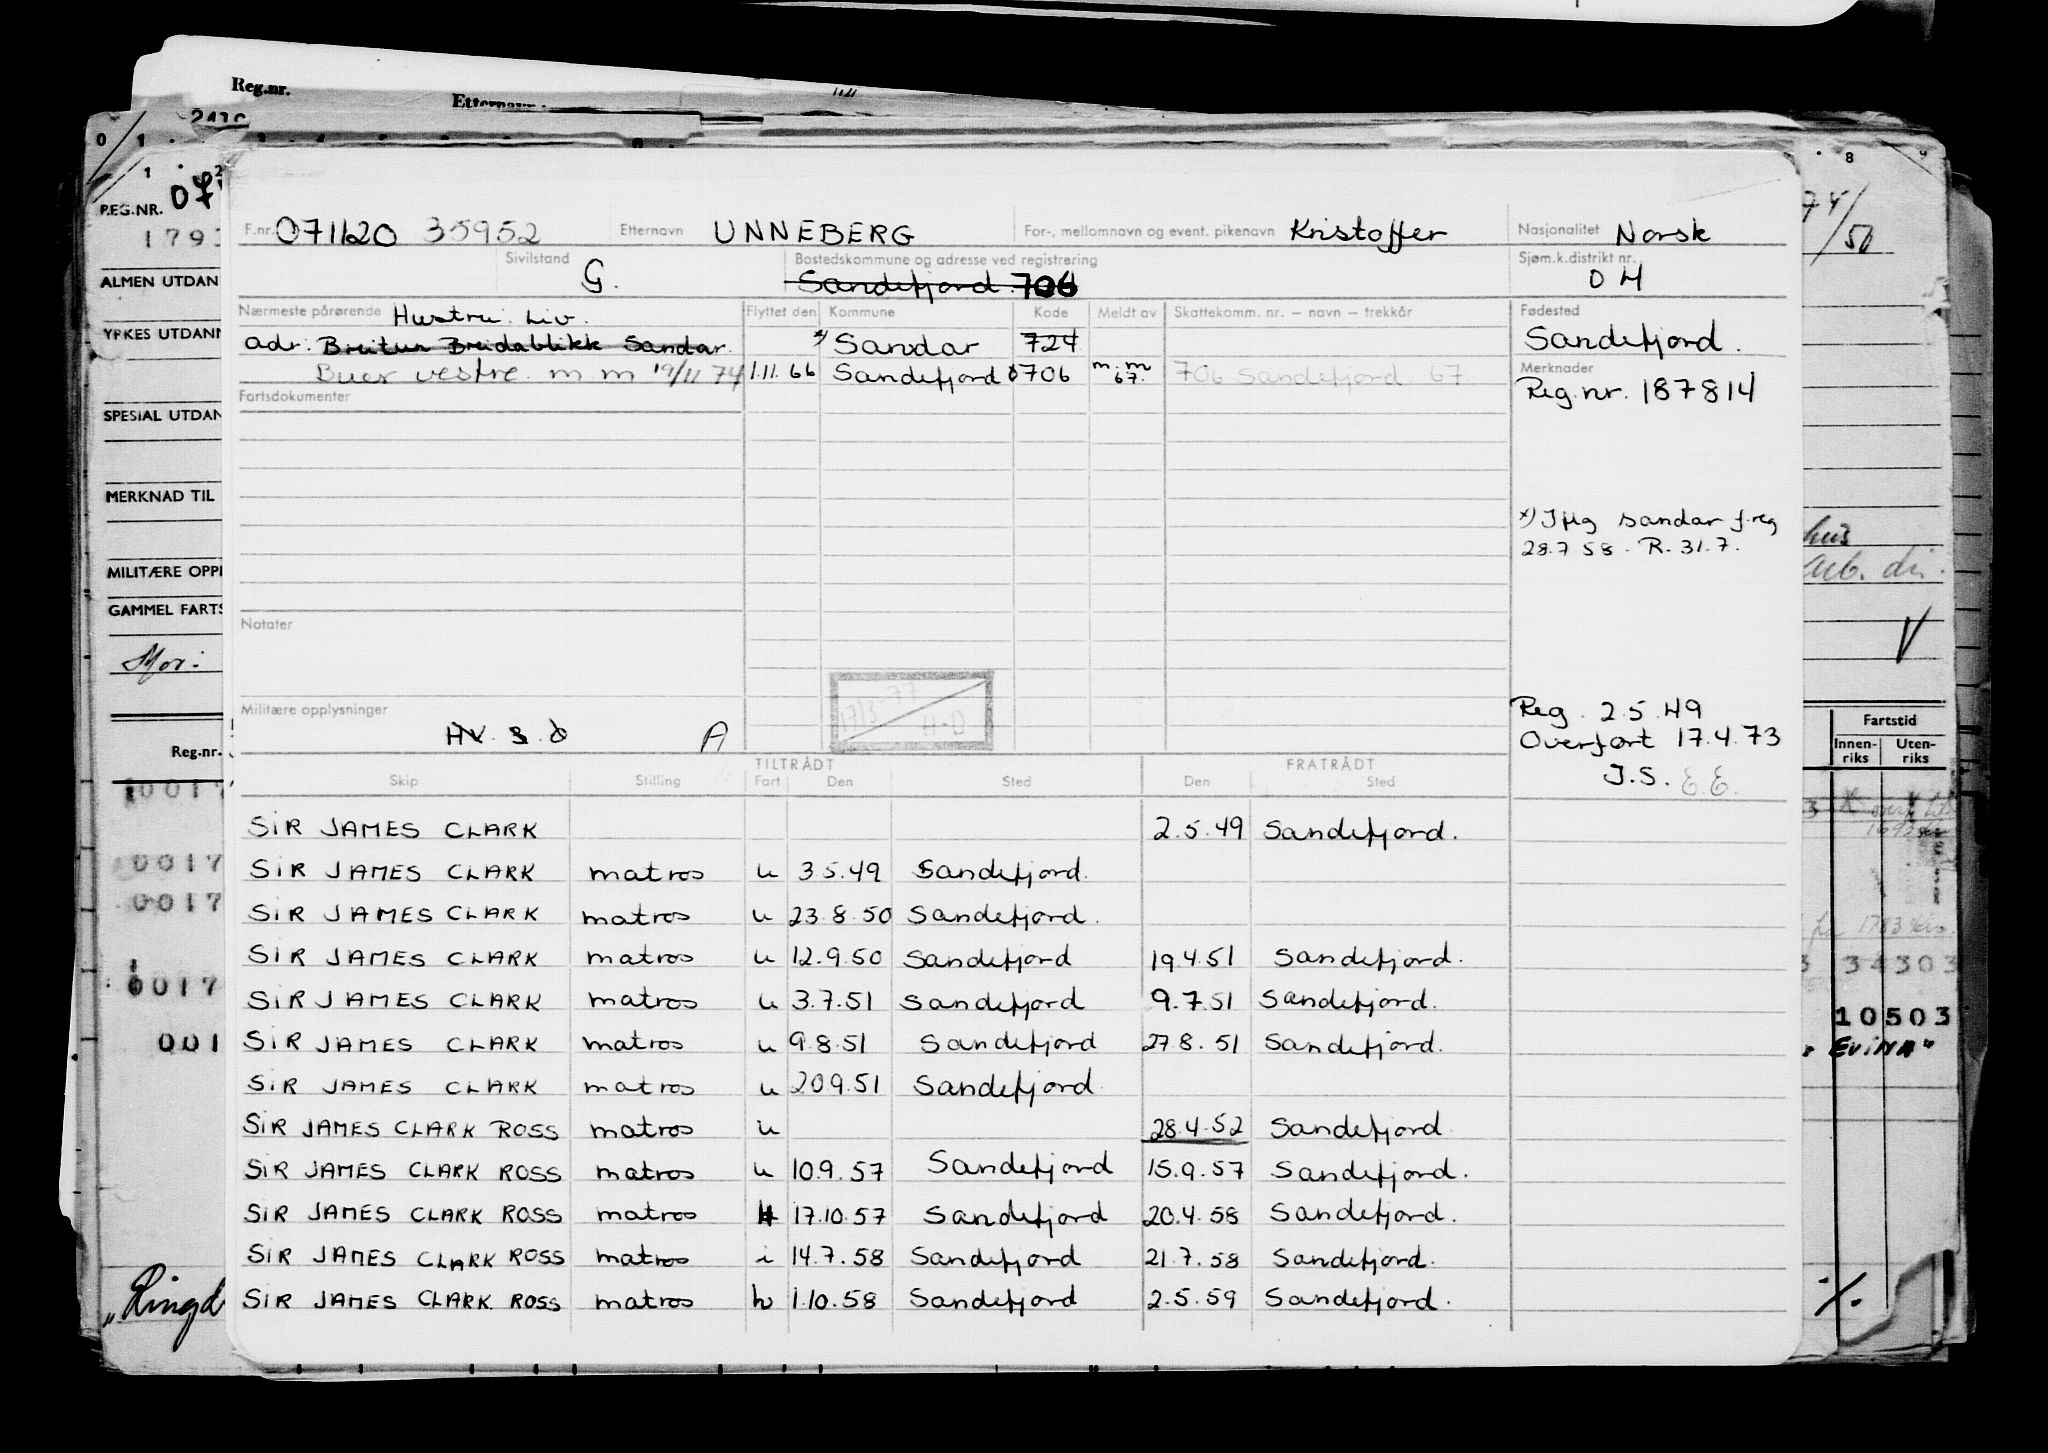 Reg.nr. Etternavn
REG.NR. 07
ALMEN UTDAN
YRKES UTDANN
SPESIAL UTDAN
MERKNAD TIL
MILITÆRE OPPL
GAMMEL FARTS
Reg.nr.
0017
0017
0017
001
F.nr. 071120 35952 Etternavn UNNEBERG For-, mellomnavn og event. pikenavn Kristoffer Nasjonalitet Norsk
Sivilstand G. Bostedskommune og adresse ved registrering Sandefjord 706 Sjøm.k.distrikt nr. 04
Nærmeste pårørende Hustru Liv. Flyttet den Kommune Kode Meldt av Skattekomm. nr. – navn – trekkår Fødested
adr. Breidablikk Sandar. *) Sandar 724 Sandefjord.
Buer vestre m m 19/11 74 1.11.66 Sandefjord 0706 m.m 67. 706 Sandefjord 67 Merknader
Fartsdokumenter Reg.nr. 187814
*) Iflg Sandar f.reg
28.7 58 - R. 31.7.
Notater
17/3-77
H.D
Militære opplysninger
A
Reg. 2.5.49
Overført 17.4.73
J.S. E.E.
TILTRÅDT FRATRÅDT
Skip Stilling Fart Den Sted Den Sted
SIR JAMES CLARK 2.5.49 Sandefjord.
SIR JAMES CLARK matros u 3.5.49 Sandefjord.
SIR JAMES CLARK matros u 23.8.50 Sandefjord.
SIR JAMES CLARK matros u 12.9.50 Sandefjord 19.4.51 Sandefjord.
SIR JAMES CLARK matros u 3.7.51 Sandefjord 9.7.51 Sandefjord.
SIR JAMES CLARK matros u 9.8.51 Sandefjord 27.8.51 Sandefjord.
SIR JAMES CLARK matros u 20.9.51 Sandefjord
SIR JAMES CLARK ROSS matros u 28.4.52 Sandefjord
SIR JAMES CLARK ROSS matros u 10.9.57 Sandefjord 15.9.57 Sandefjord.
SIR JAMES CLARK ROSS matros H 17.10.57 Sandefjord 20.4.58 Sandefjord.
SIR JAMES CLARK ROSS matros i 14.7.58 Sandefjord 21.7.58 Sandefjord.
SIR JAMES CLARK ROSS matros h 1.10.58 Sandefjord 2.5.59 Sandefjord.
Fartstid
Innen-riks Uten-riks
34303
10503
"EVINA"